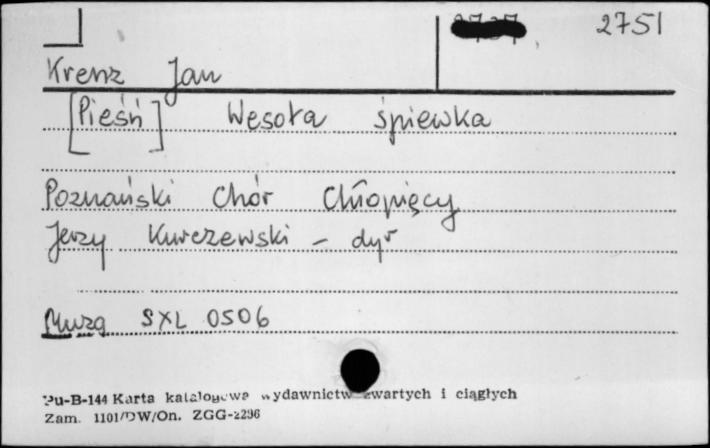 2751
Krenz Jan
[Pieśń] Wesoła śpiewka
Poznański Chór Chłopięcy
Jerzy Kurczewski – dyr
Muza SXL 0506
Pu-B-144 Karta katalogowa wydawnictw zwartych i ciągłych
Zam. 1101/DW/On. ZGG-2296